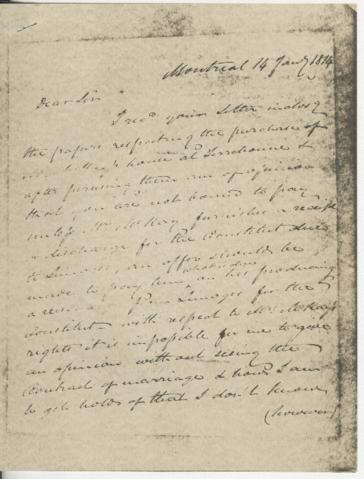 Montreal 14 Jany 1814
Dear Sir
I recd. yours Letter inclosg
the papers respecting the purchase of
house at Terrebonne &
after perusing them am of opinion
that you are not bound to pay
unless Mr. McKay furnishes a receipt
& discharge for the Constitut due
to Limoges, an offer should be
made to pay him on his producing
a from Limoges for the
Constitut with respect to Mrs. McKay's
rights it is impossible for me to give
an opinion without seeing the
Contract of marriage & how I am
to get holds of that I don't know
(however)